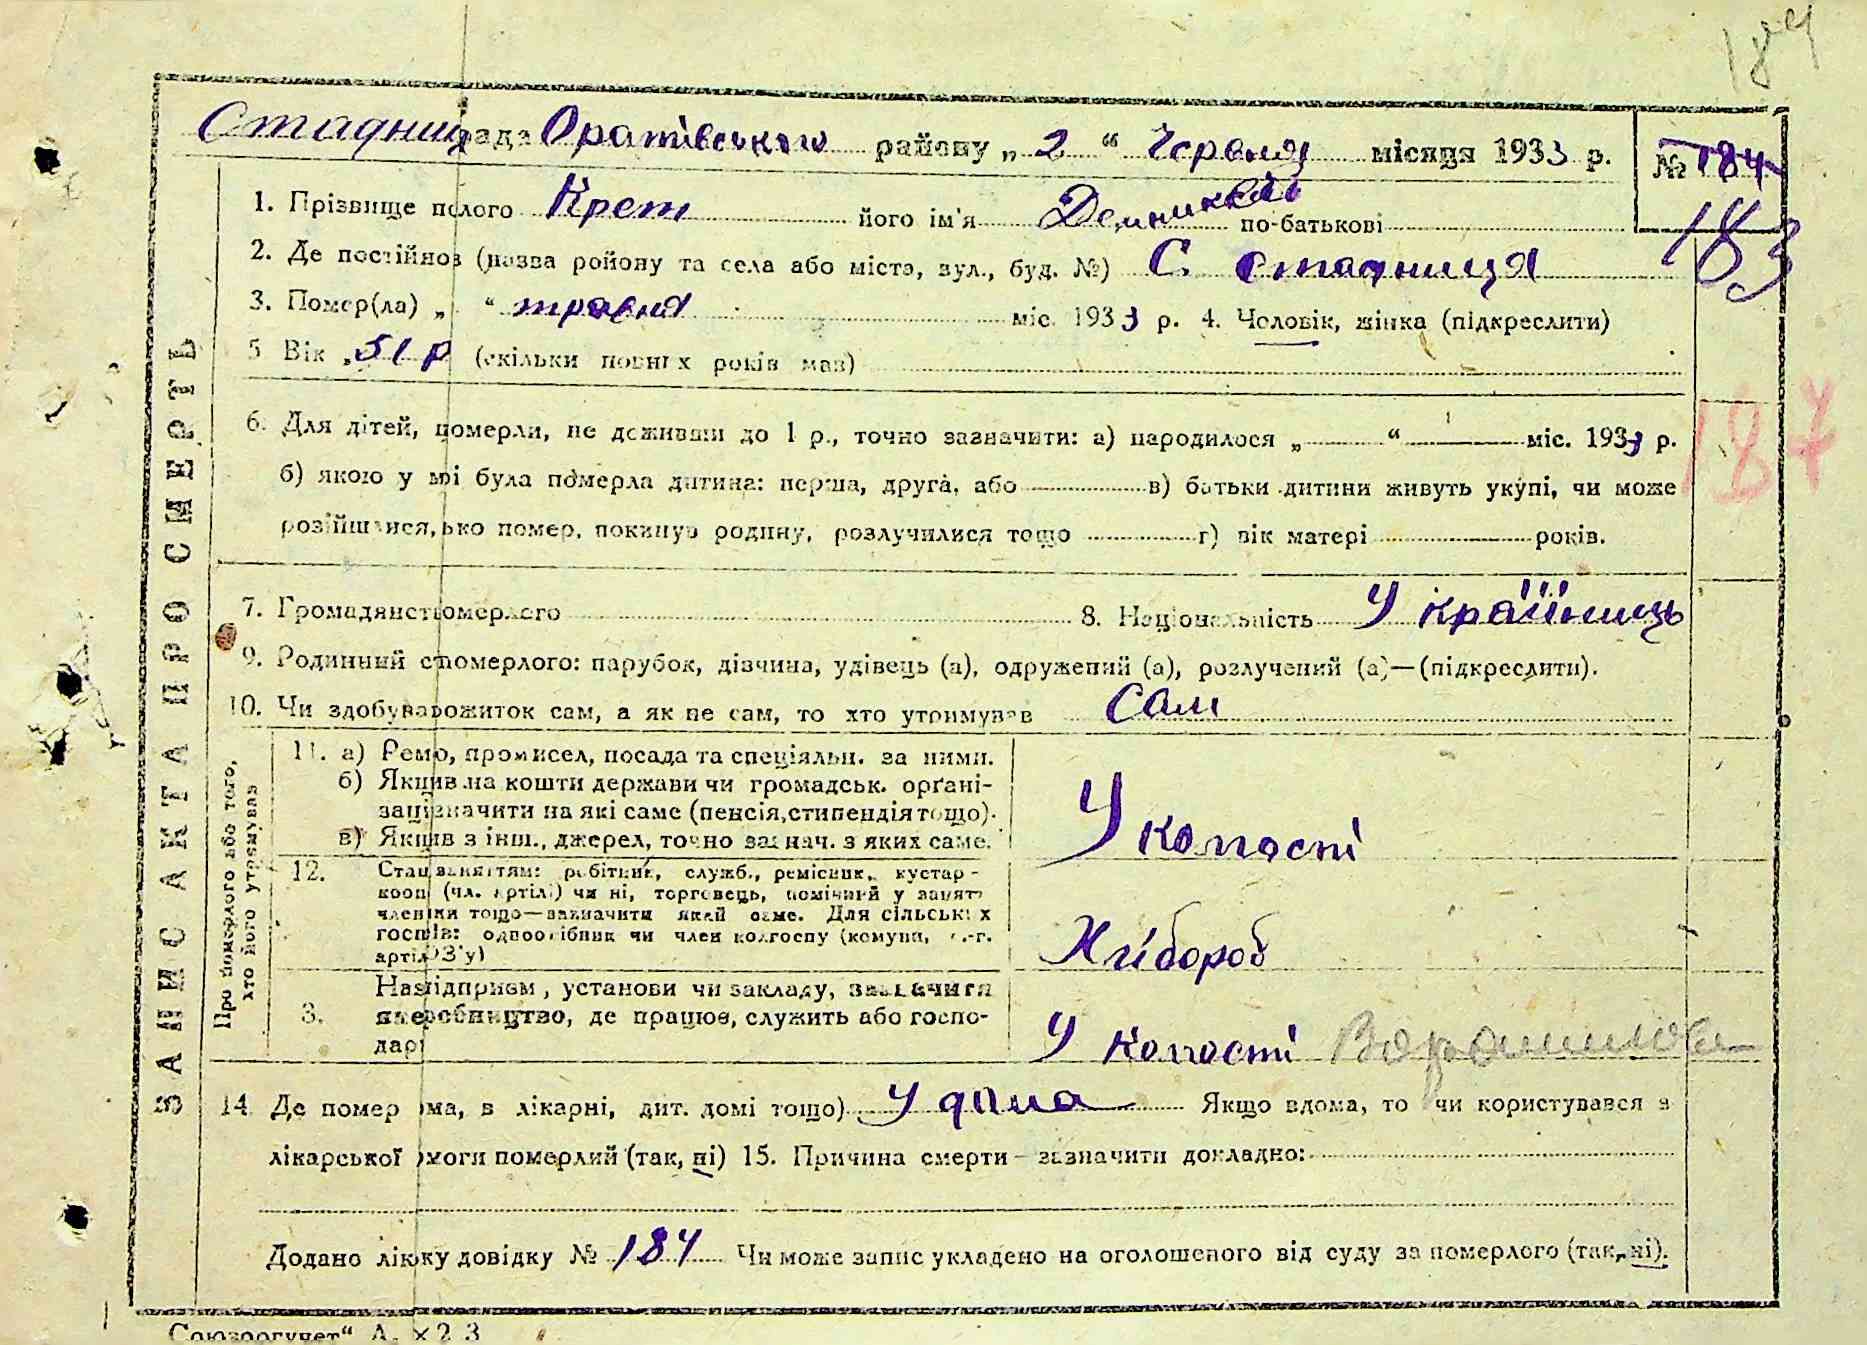 184
Стадниц рада Оратівського району „ 2 “ Червня місяця 1933 р. № 184
183
1. Прізвище п лого Крет його ім'я по-батькові
2. Де постійноз (назваройону та села або місто, вул., буд. №) С. Стадниця
3. Помер(ла) „ “ травня міс. 1933 р. 4. Чоловік, жінка (підкреслити)
5 Вік „51 р (скільки повних років мав)
187
6. Для дітей, померли, не доживши до 1 р., точно зазначити: а) народилося „ “ міс. 1933 р.
б) якою у була померла дитина: перша, друга, або в) батьки дитини живуть укупі, чи може
розійшлися, ько помер, покинув родину, розлучилися тощо г) вік матері років.
7. Громадянст омерлого 8. Національність Україниць
9. Родинний ст омерлого: парубок, дівчина, удівець (а), одружений (а), розлучений (а)—(підкреслити).
10. Чи здобував ожиток сам, а як не сам, то хто утримував Сам
ЗАПИС АКТА ПРО СМЕРТЬ
Про померлого або того, хто його утримував
11. а) Ремо, промисел, посада та спеціяльн. за ними.
б) Якщив на кошти держави чи громадськ. орґані-
заці значити на які саме (пенсія, стипендія тощо).
в) Якщив з інш., джерел, точно зазнач. з яких саме.
У колгості
12. Стан заняттям: робітник, служб., ремісник, кустар-
кооп (чл. артілі) чи ні, торговець, помічний у занят
член ки тощо—зазначити який саме. Для сільських
госп в: одноосібник чи член колгоспу (комуни, с.-г.
артіл ЗЗ'у)
Хлібороб
3. Наз підприєм, установи чи закладу, зазначити
виробництво, де працює, служить або госпо-
дар
У колгості Ворошилова
14. Де помер ма, в лікарні, дит. домі тощо) У дома Якщо вдома, то чи користувався з
лікарської моги померлий (так, ні) 15. Причина смерти — зазначити докладно:
Додано лік ку довідку № 184 Чи може запис укладено на оголошеного від суду за померлого (так, ні).
Союзоргучет“ А. ×23